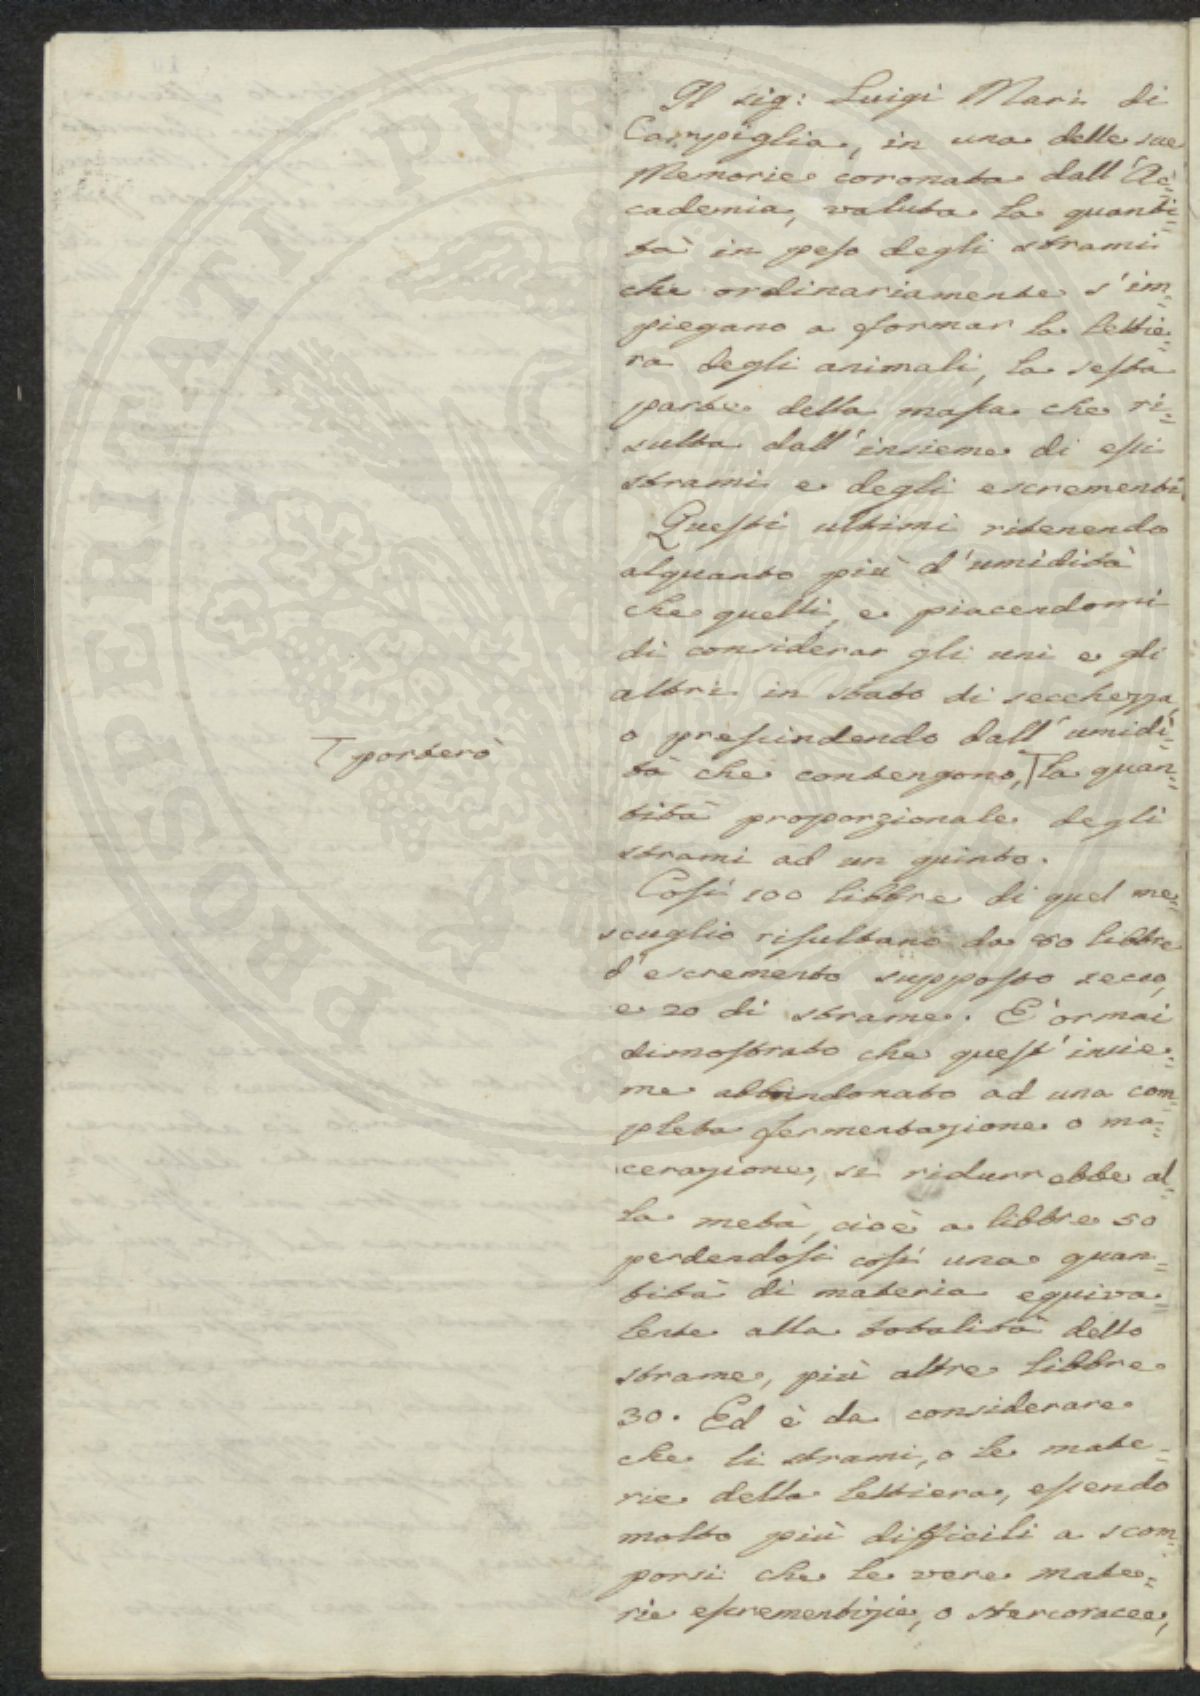 Il sig: Luigi Mari di
Campiglia, in una delle sue
Memorie coronata dall'Ac=
cademia, valuta la quanti=
tà in peso degli strami
che ordinariamente s'im=
piegano a formar la lettie=
ra degli animali, la sesta
parte della massa che ri=
sulta dall'insieme di essi
strami e degli escrementi.
Questi ultimi ritenendo
alquanto più d'umidità
che quelli, e piacendomi
di considerar gli uni e gli
altri in stato di secchezza,
o prescindendo dall'umidi=
tà che contengono, T la quan=
T porterò
tità proporzionale degli
strami ad un quinto.
Così 100 libbre di quel me=
scuglio risultano da 80 libbre
d'escremento supposto secco,
e 20 di strame. E' ormai
dimostrato che quest'insie=
me abbandonato ad una com=
pleta fermentazione o ma=
cerazione, si ridurrebbe al=
la metà, cioè a libbre 50
perdendosi così una quan=
tità di materia equiva=
lente alla totalità dello
strame, più altre libbre
30. Ed è da considerare
che li strami, o le mate=
rie della lettiera, essendo
molto più difficili a scom=
porsi che le vere mate=
rie escrementizie, o stercoracee,
PROSPERITATI PUBLICAE